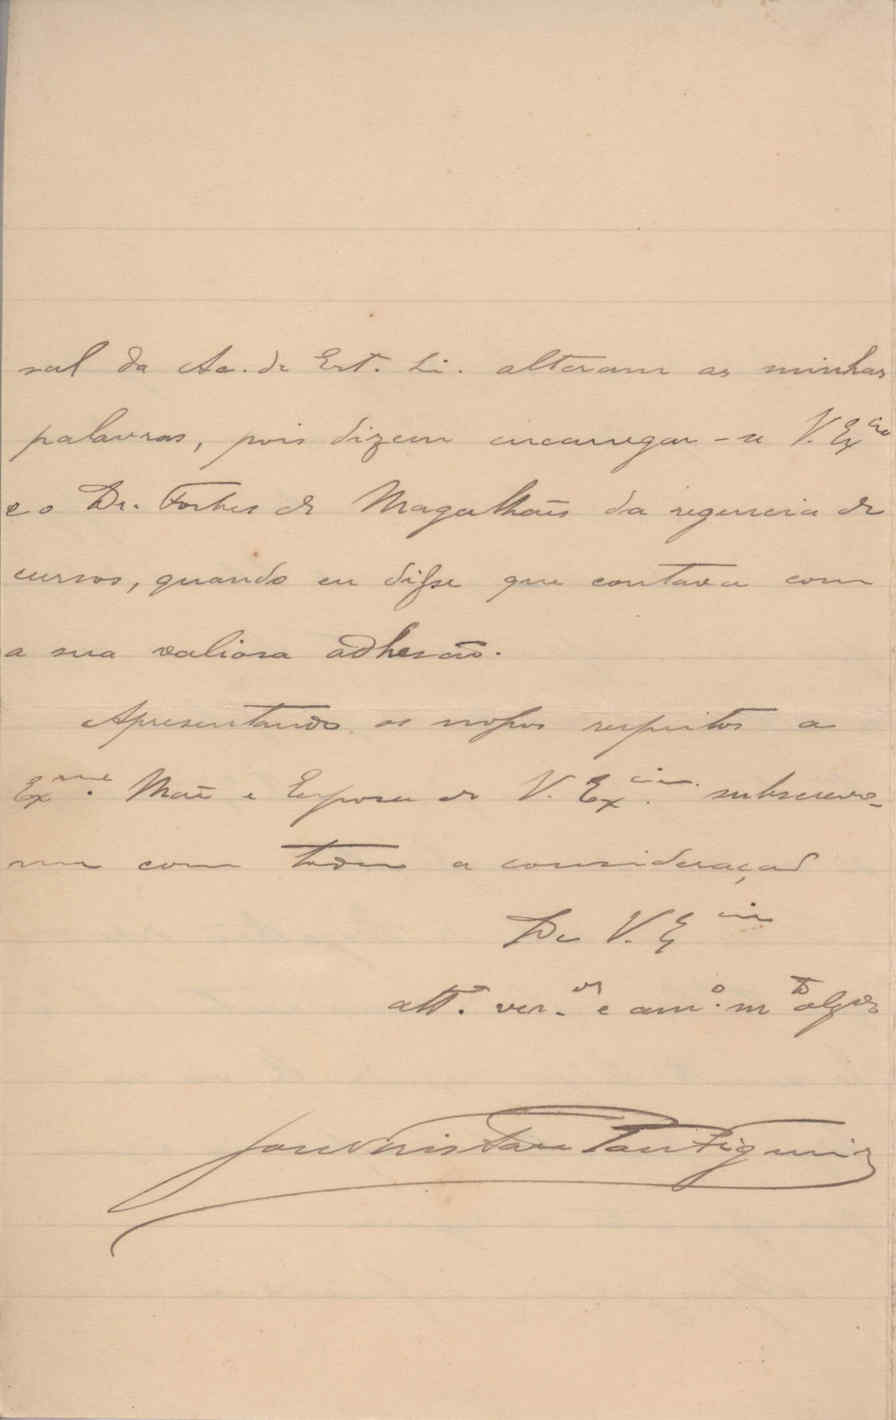 sal da Ac. de Est. Li. alteram as minhas
palavras, pois dizem encarregar-se V. Exᶜⁱᵃ
e o Dr. Fortes de Magalhães da regencia de
cursos, quando eu disse que contava com
a sua valiosa adhesão.
Apresentando os nossos respeitos a
Exᵐᵃ. Mãe e Esposa de V. Exᶜⁱᵃ. subscrevo-
me com toda a consideração
De V. Exᶜⁱᵃ
attº. ven.ᵒʳ e amº. mᵗᵒ obgdo
José